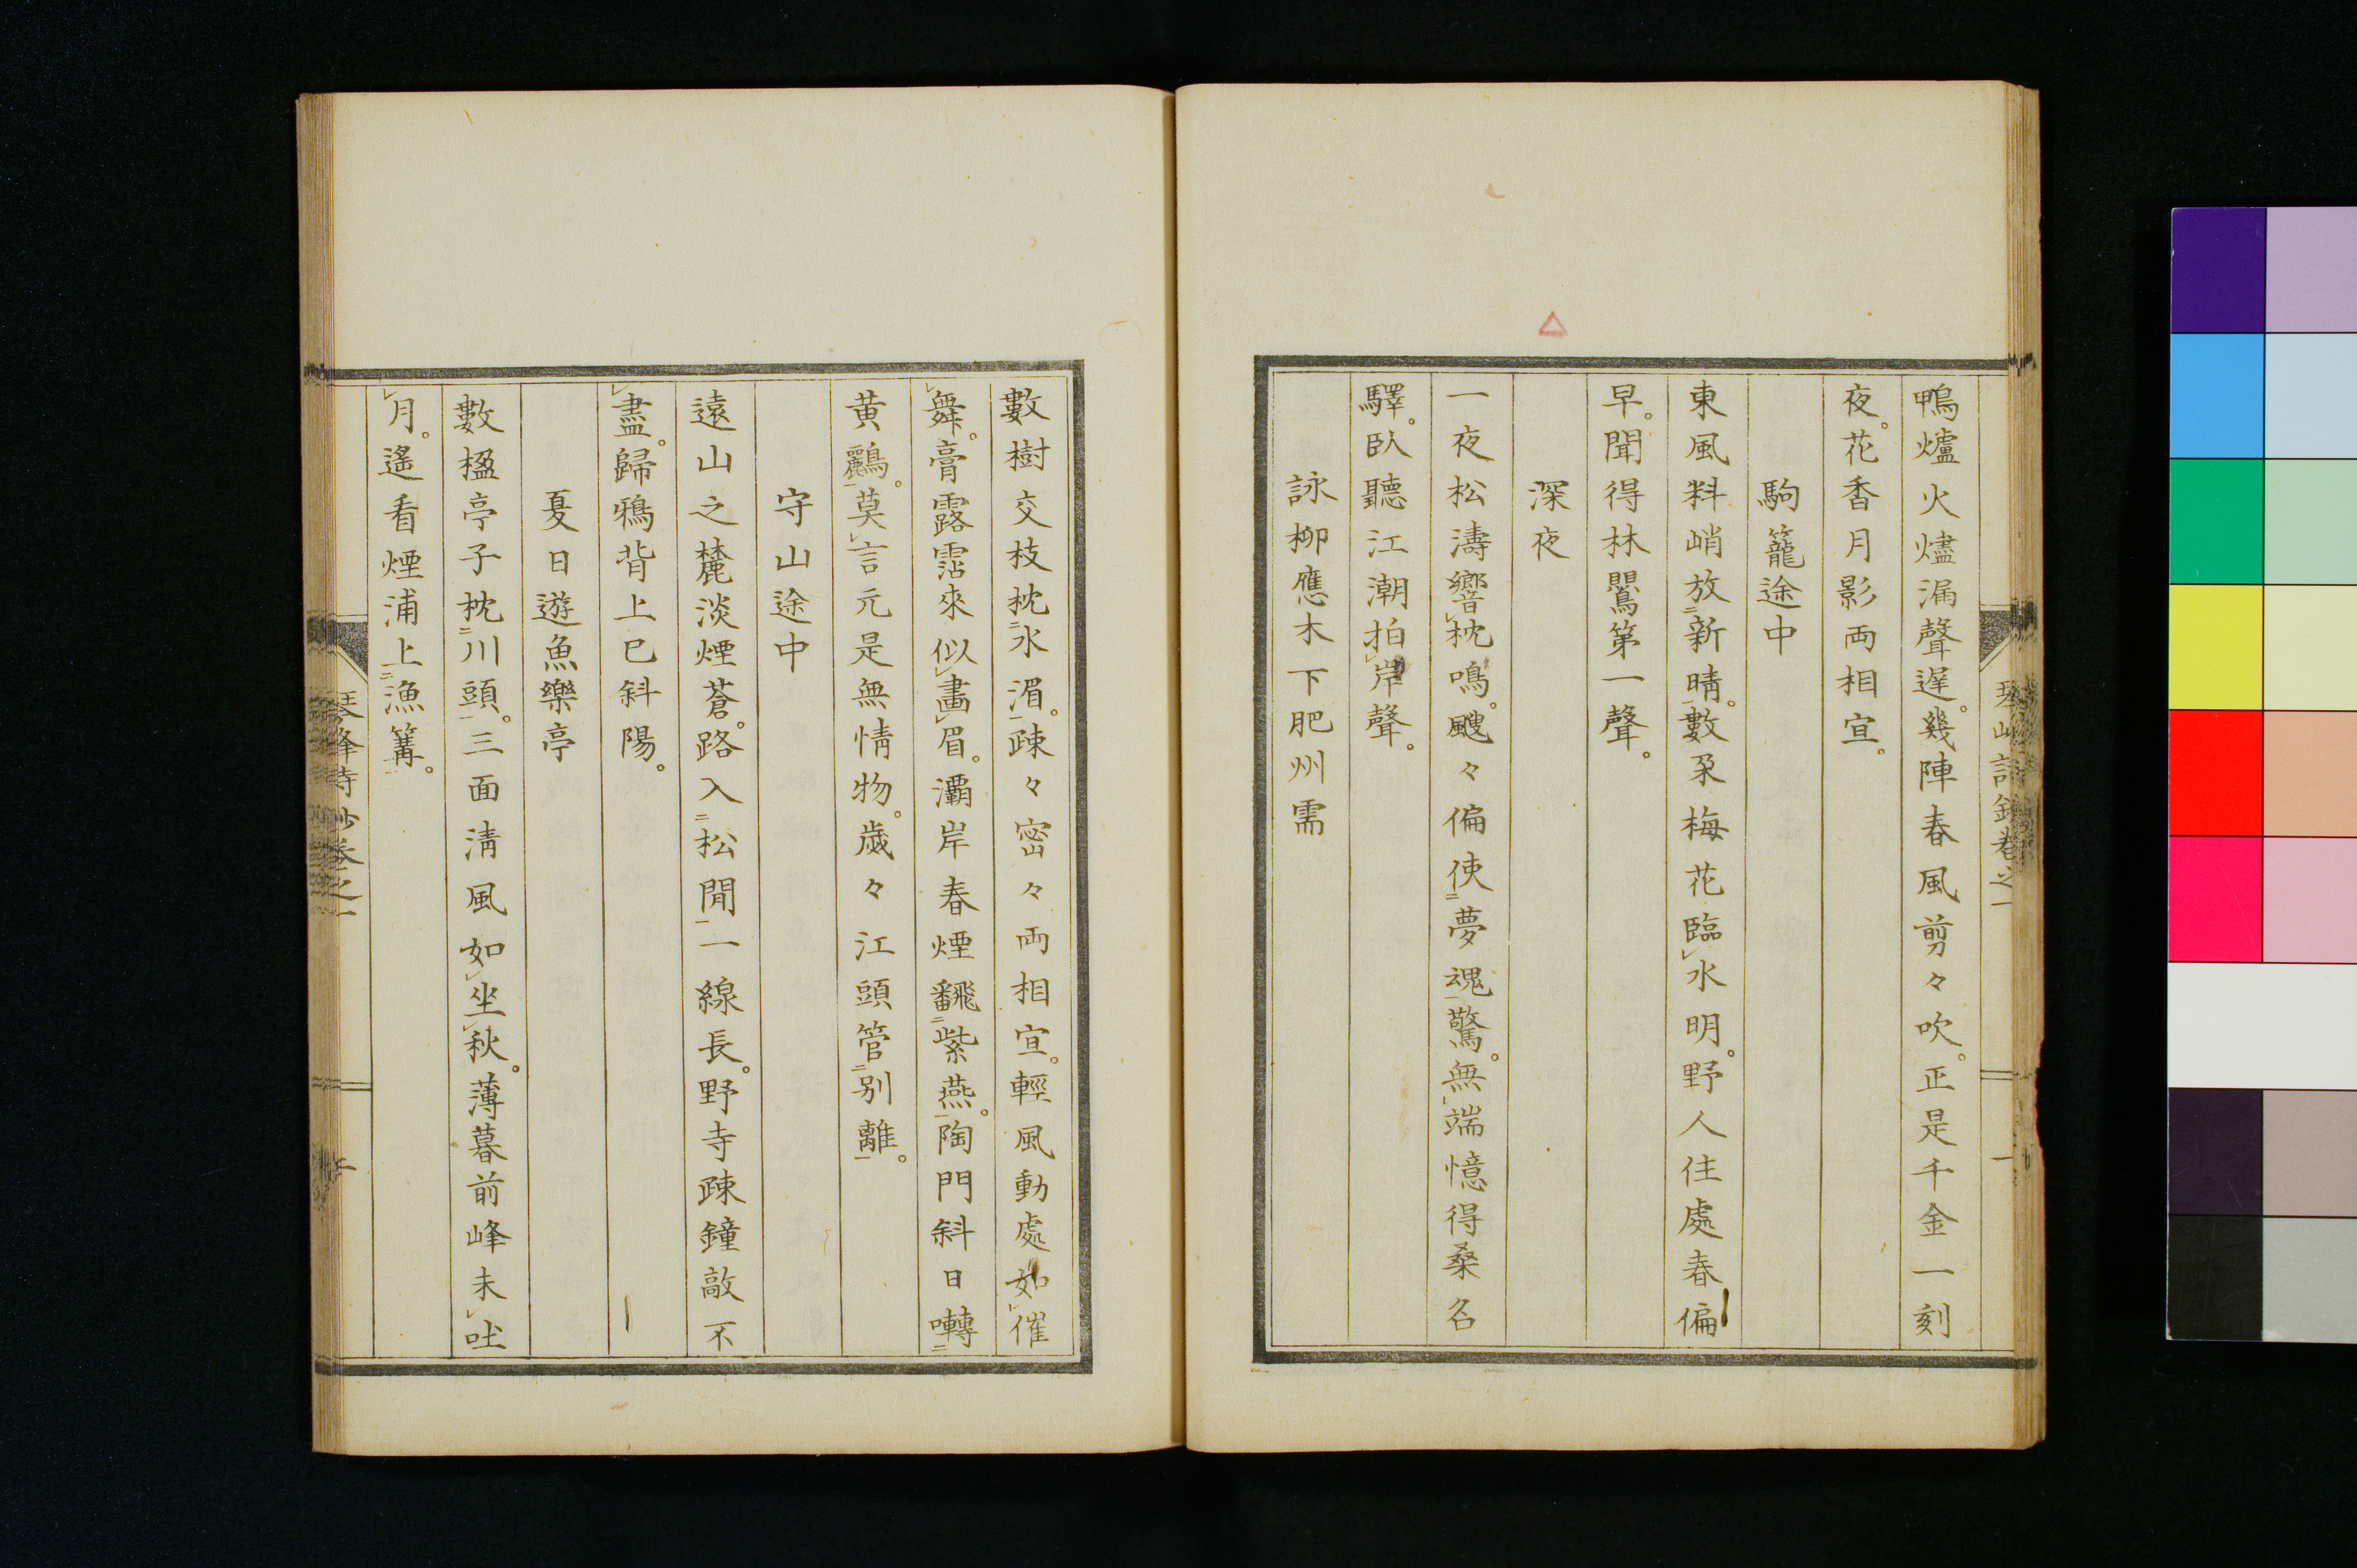 鴨爐火燼漏聲遲。幾陣春風剪々吹。正是千金一刻
夜。花香月影両相宜。
駒籠途中
東風料峭放二新晴一。數朶梅花臨レ水明。野人住處春偏
早。聞得林鸎第一聲。
深夜
一夜松濤響レ枕鳴。颼々偏使二夢魂一驚。無レ端憶得桑名
驛。臥聽江潮拍レ岸聲。
詠柳應木下肥州需
數樹交枝枕二水湄一。疎々密々両相宜。輕風動處如レ催
レ舞。膏露霑來似レ畫レ眉。灞岸春煙飜二紫燕一。陶門斜日囀二
黃鸝一。莫レ言元是無情物。歲々江頭管二別離一。
守山途中
遠山之麓淡煙蒼。路入二松間一一線長。野寺疎鐘敲不
レ盡。歸鴉背上已斜陽。
夏日遊魚樂亭
數楹亭子枕二川頭一。三面淸風如レ坐レ秋。薄暮前峰未レ吐
レ月。遙看煙浦上二漁篝一。